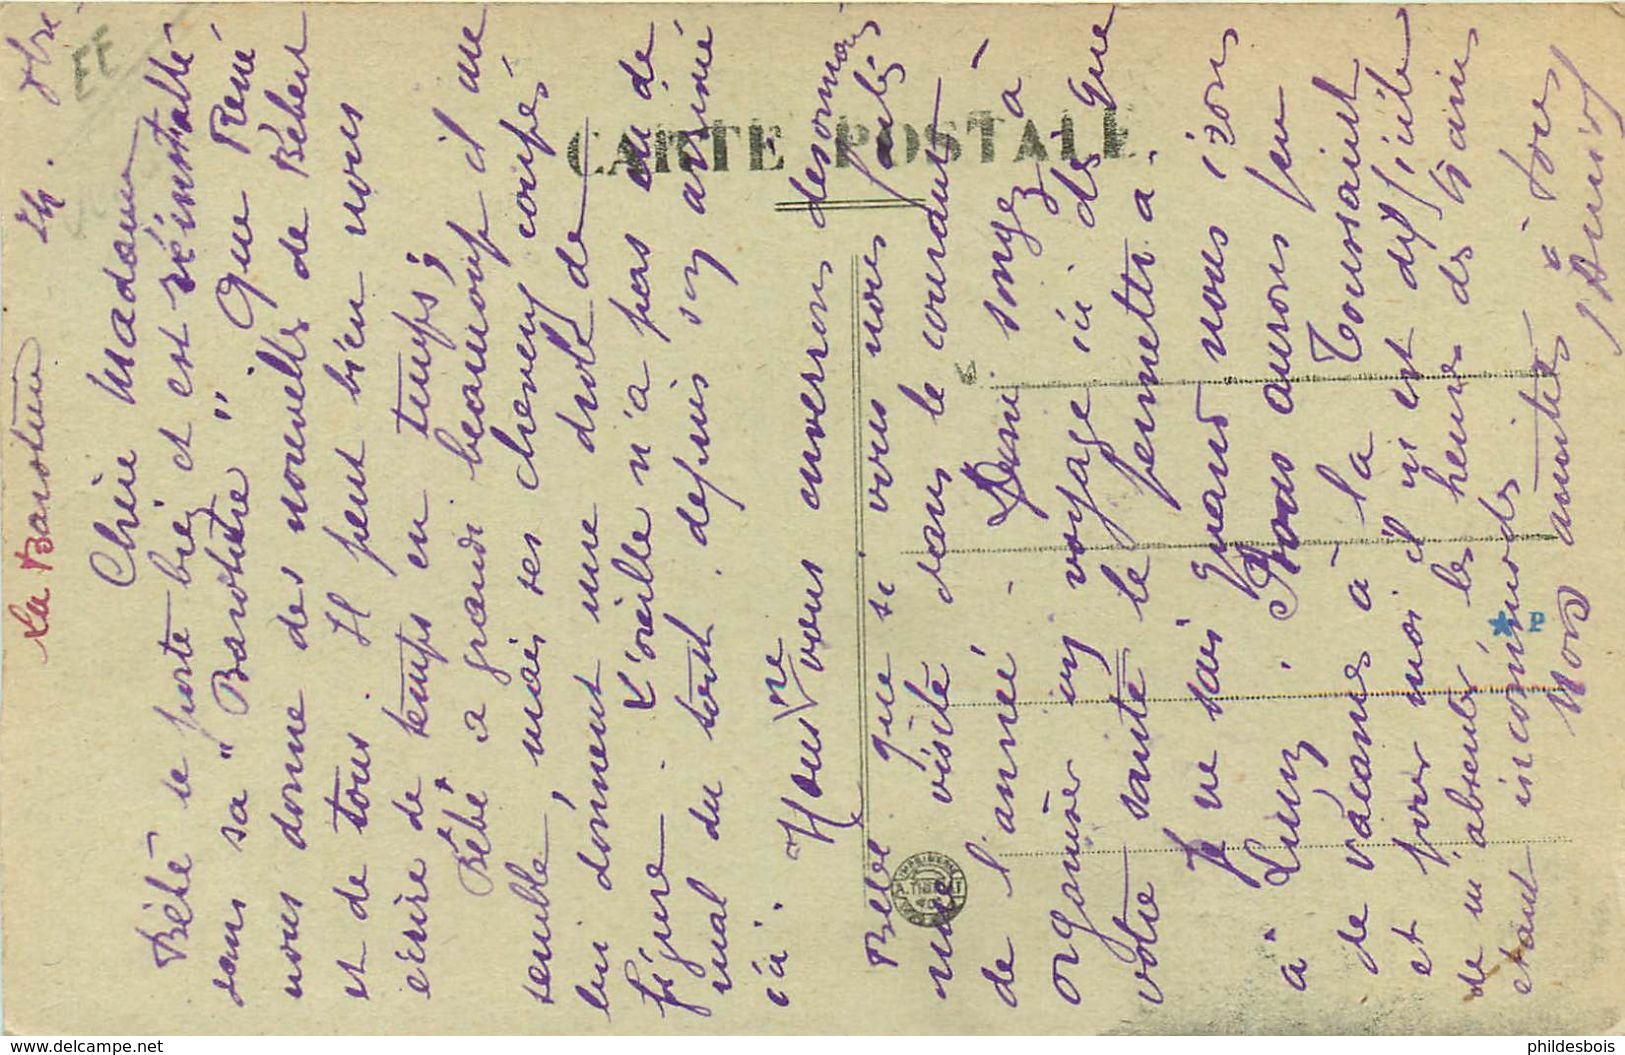 La Barotière
24. 8bre
EE
Chère Madame
Bébé se porte bien et est réinstallé
dans sa "Barotière". Que René
nous donne des nouvelles de Bébert
et de tous. Il peut bien nous
écrire de temps en temps,
Bébé a grandi beaucoup il me
semble, mais ses cheveux coupés
lui donnent une drole de
figure. L'oreille n'a pas eu de
mal du tout depuis son arrivée
ici.
Nous vous enverrons désormais
Belle que si vous nous faites
une visite dans le courant
de l'année. Ainsi songez à
organiser un voyage ici dès que
votre santé le permettra.
Je ne sais quand nous irons
à Luny. Nous aurons peu
de vacances à la Toussaint
et pour moi il m'est difficile
de m'absenter les heures des trains
étant incommodes
Nos amitiés à tous
CARTE POSTALE
www.delcampe.net
phildesbois